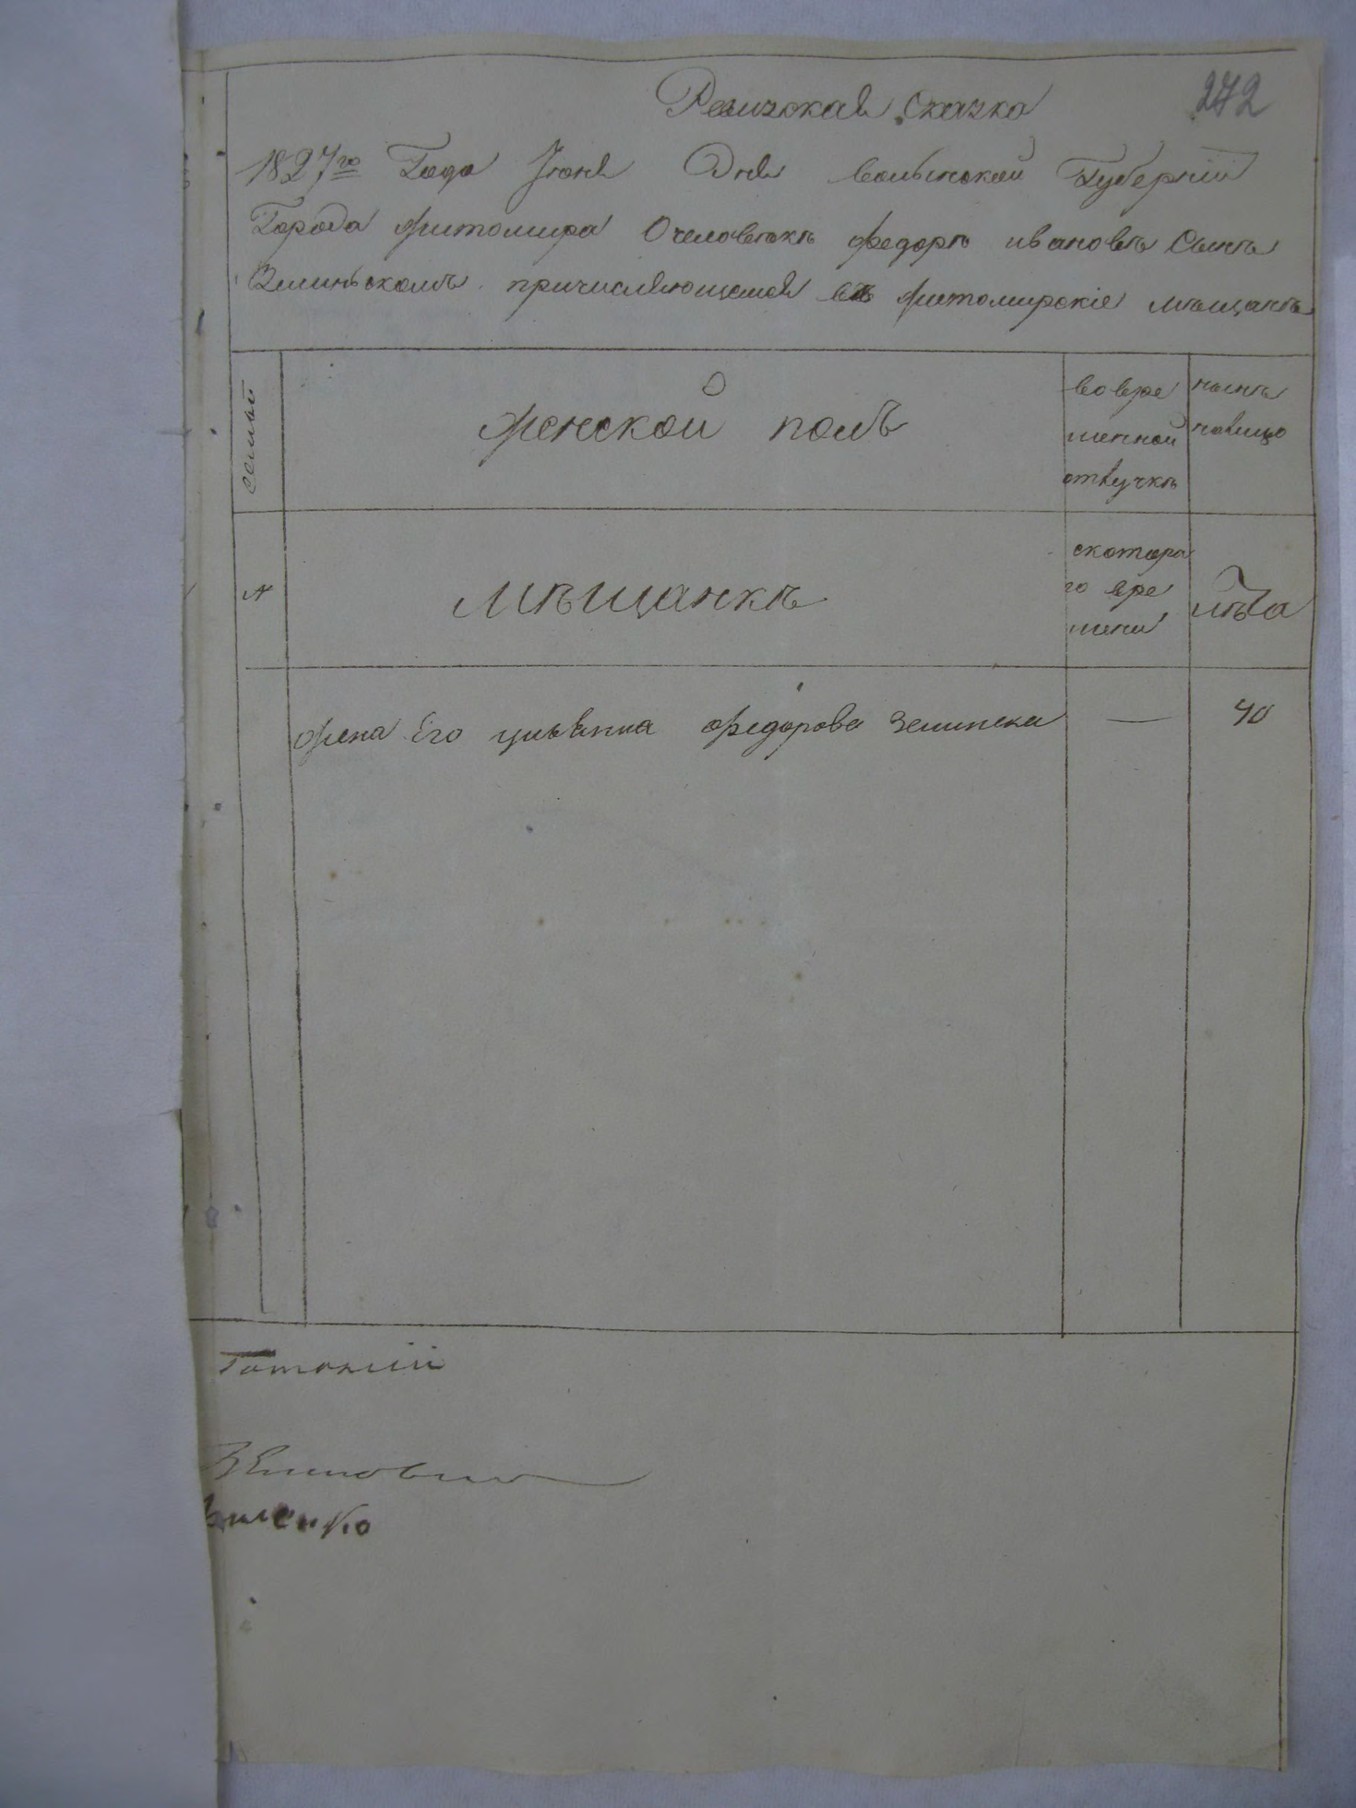 272
Ревизская Сказка
1827го Года Июня Дня волынской Губернии
Города житомира О человѣкѣ федорѣ ивановѣ Сынѣ
Зелинскомъ причисляющемся въ житомирскіе мѣщанѣ
семьй
женской полъ
во вре
менной
отлучкѣ
нынѣ
налицо
№
мѣщанкѣ
скотора
го вре
мени
лѣта
жена Его федорова Зелинска — 40